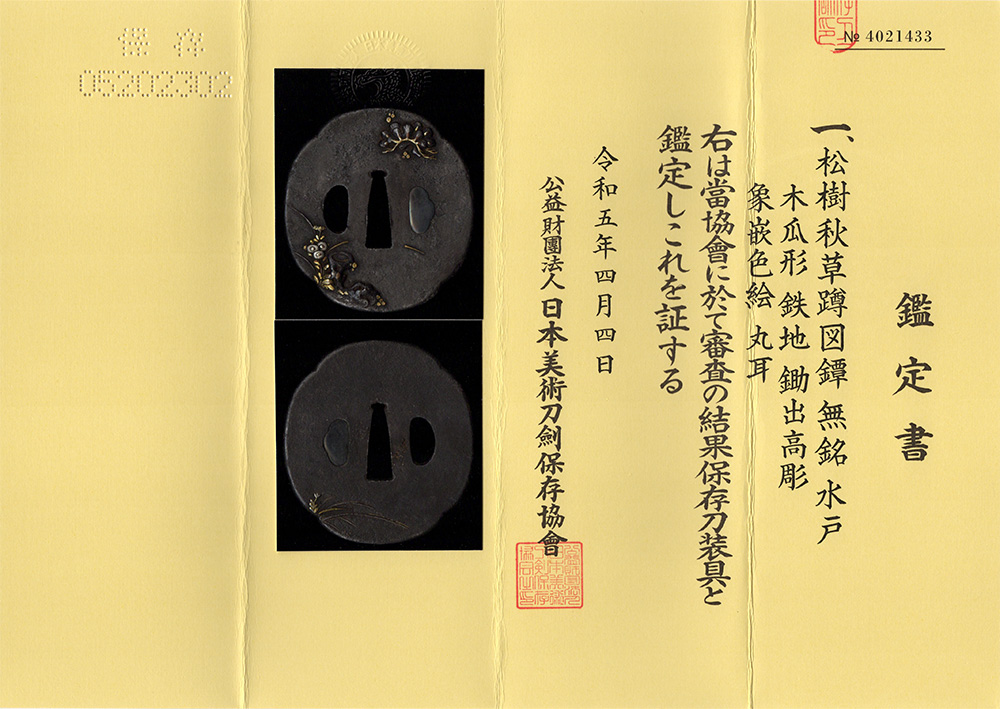 № 4021433
鑑定書
一、松樹秋草蹲図鐔 無銘 水戸
木瓜形 鉄地 鋤出高彫
象嵌色絵 丸耳
右は當協會に於て審査の結果保存刀装具と
鑑定しこれを証する
令和五年四月四日
公益財團法人 日本美術刀劍保存協會
保存
05202302